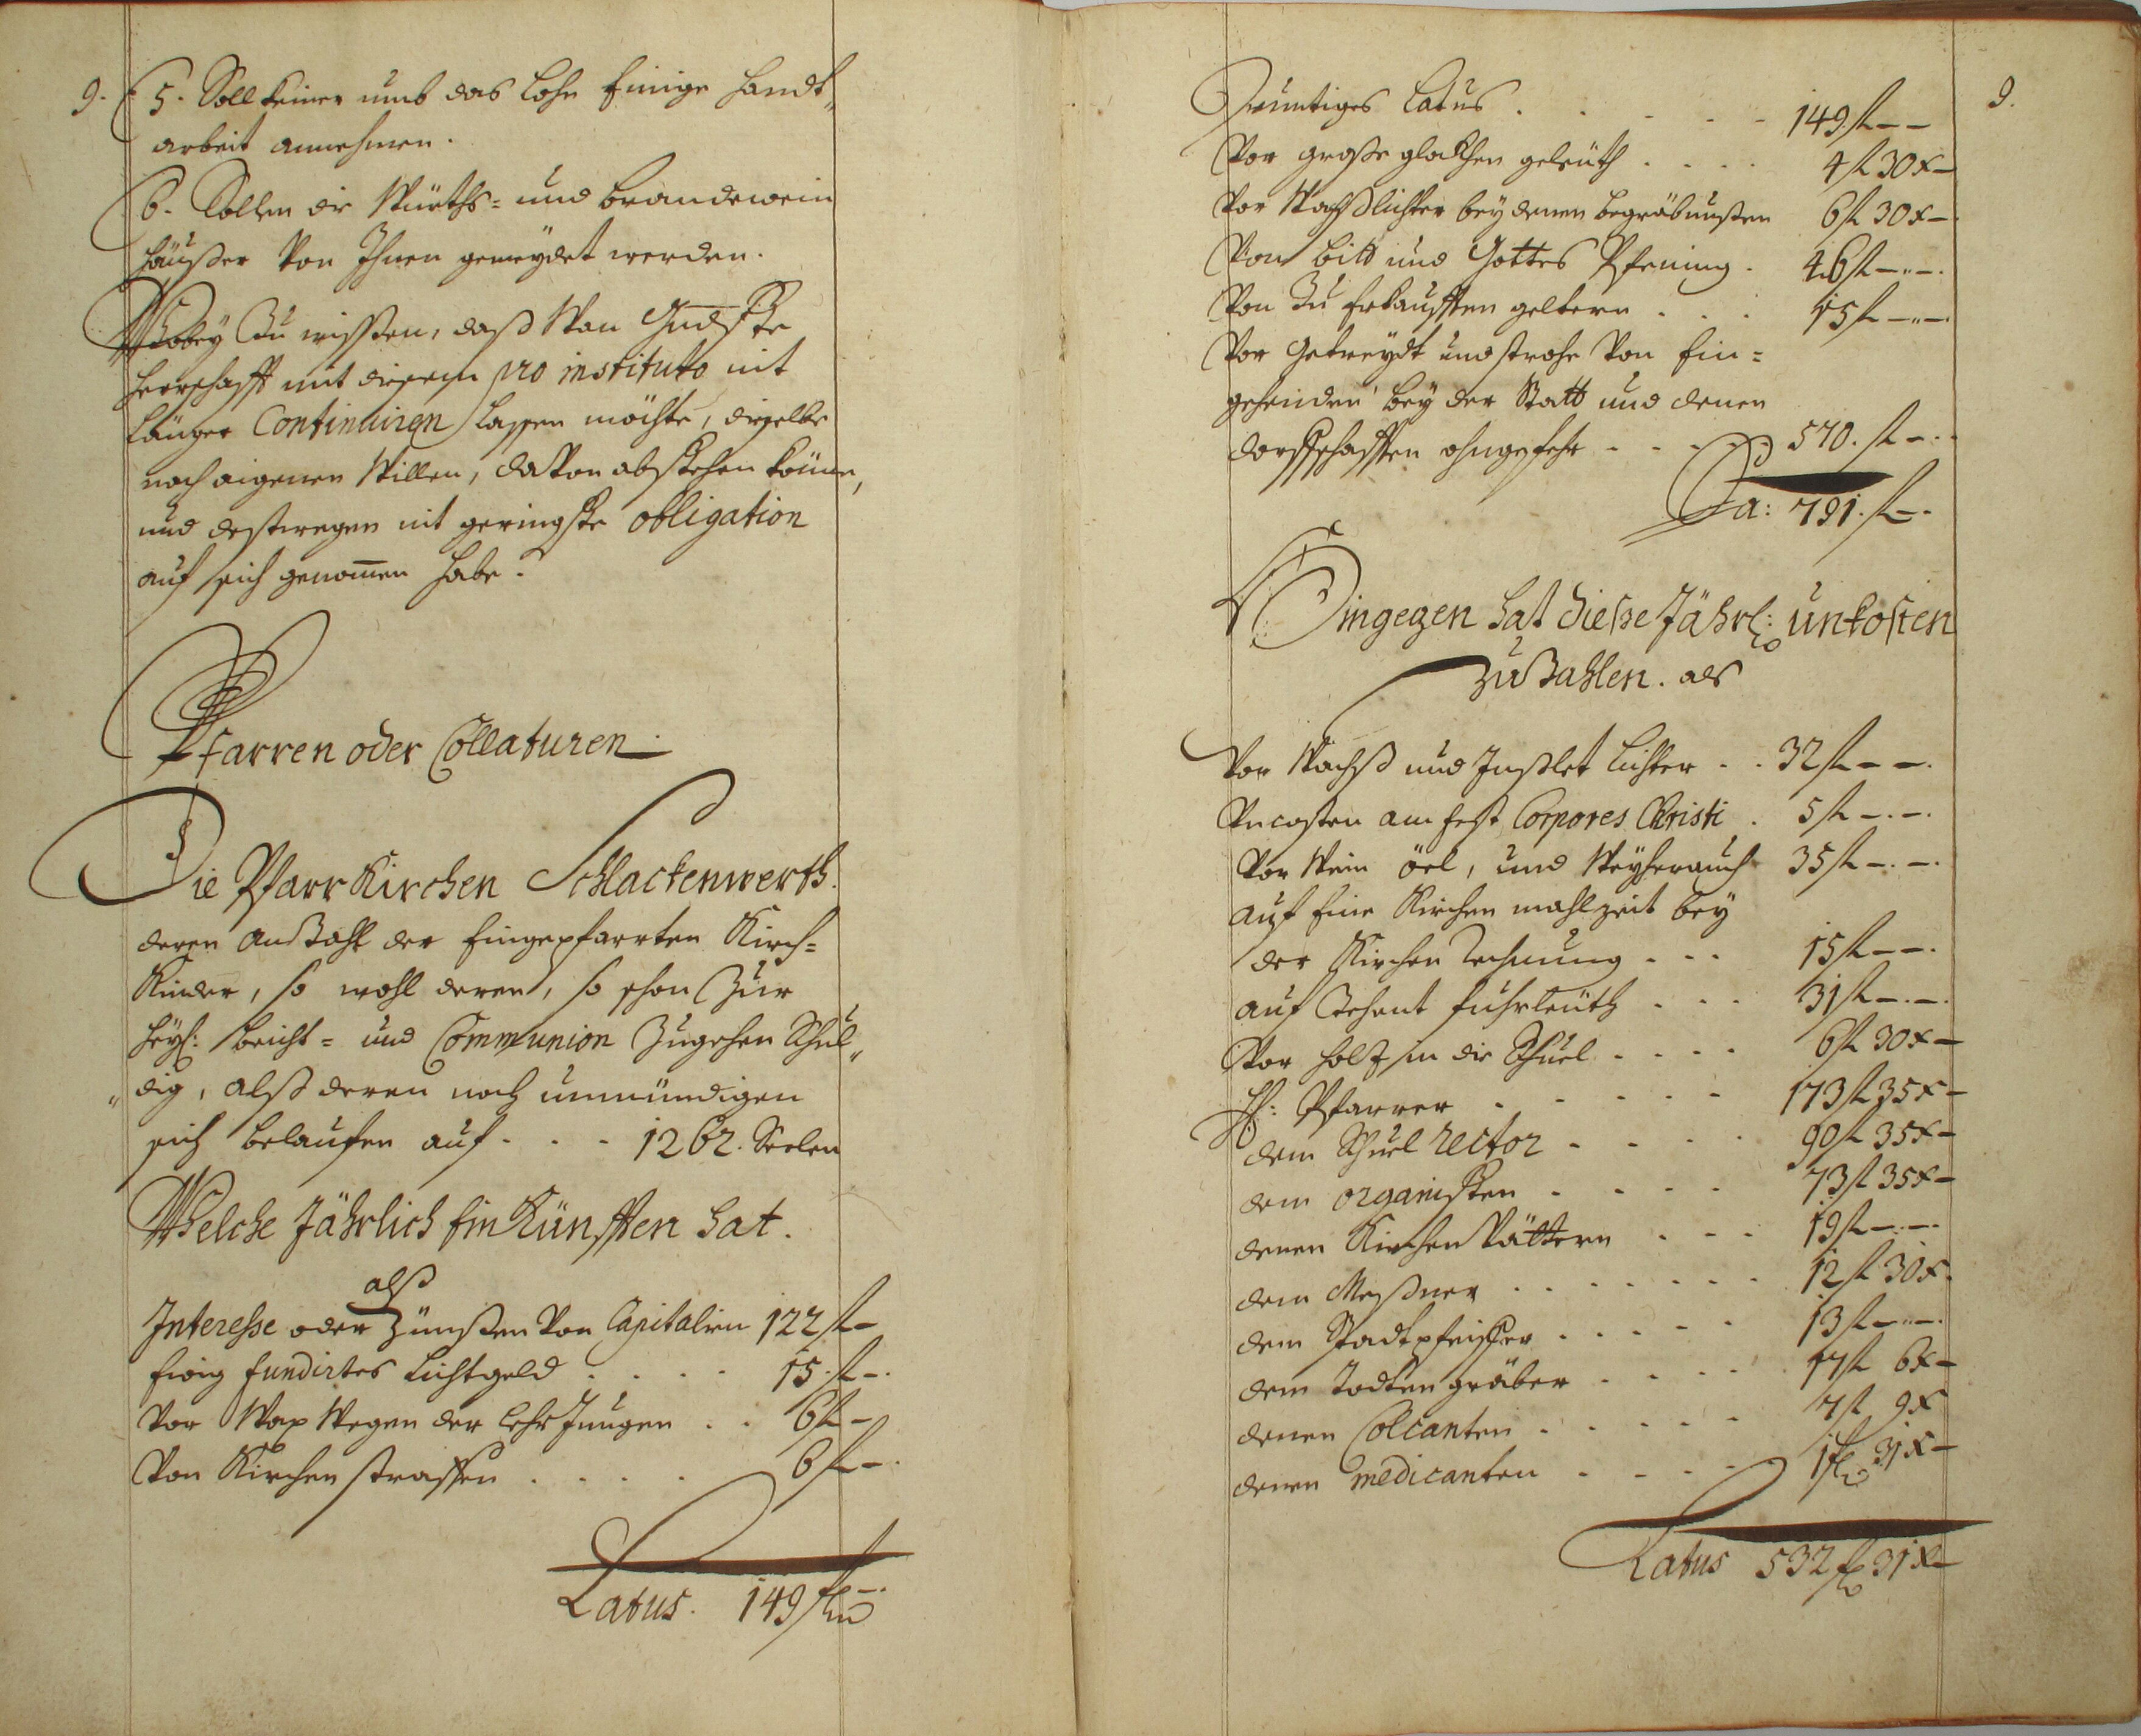 9.
5. Soll keiner umb das lohn Einige handt„
arbeit annehmen.
6. Sollen die Würths= und brandewein
häußer von Ihnen gemeydet werden.
Wobey zu wissen, daß Wan Gndste
herrschafft mit diesem pro instituto nit
länger Continuiren lassen möchte, dieselbe
nach aigenen Willen, davon abstehen könne,
und destwegen nit geringste obligation
auf sich genom̄en habe.
Pfarren oder Collaturen.
Die Pfarr Kirchen Schlackenwerth.
deren anzahl der Eingepfarrten Kirch=
Kinder, so wohl deren, so schon zur
heyl: beicht= und Communion zugehen Schul„
„dig, alß deren noch unmündigen
sich belaufen auf . . . 1262. Seelen
Welche Jährlich Ein Künfften hat.
alß
Interesse oder Zünßen von Capitalien 122 fl–
Ewig fundirtes lichtgeld . . . . 15. fl–.
Vor Wax Wegen der lehr Jungen . . 6 fl–
Von Kirchen straffen . . . . 6 fl–.
Latus. 149 fl–.
9.
Jenntiges Latus . . . . . 149. fl – –
Vor große glockhen geleüth . . . . 4 fl 30 x–
Vor Wachßlichter bey denen begräbnußen 6 fl 30 x–
Von bitt und Gottes Pfening . 46 fl –..–.
Von zu Erkaufften geltern . . . 15 fl –..–.
Vor Getreydt und strohe von Ein=
gehenden bey der Statt und denen
dorffschafften ohngefehr . . . . 570. fl –.
Sa: 791. fl–.
Hingegen hat dieße Jährl: unkosten
zu Zahlen. als
Vor Wachß und Inßlet lichter . . 32 fl – –.
Uncosten am fest Corpores Christi . 5 fl –.–.
Vor Wein öel, und Weyherauch 35 fl –.–.
auf Eine Kirchen mahlzeit bey
der Kirchen Rechnung . . . 15 fl – –.
auf Zehent fuhrleüth . . . 31 fl –.–.
Vor holtz in die Schuel . . . . 6 fl 30 x–
H: Pfarrer . . . . . 173 fl 35 x–
dem Schuel rector . . . . 90 fl 35 x–
dem organisten . . . . 73 fl 35 x–
denen Kirchen Vättern . . . 19 fl –.–.
dem Meßner . . . . . . . 12 fl 30 x.
dem Stadtpfeiffer . . . . . 13 fl –..–.
dem Todten gräber . . . . 17 fl 6 x–
denen Colcanten . . . . . 7 fl 9 x
denen medicanten . . . . 1 fl 31 x–
Latus 532 fl 31 x–